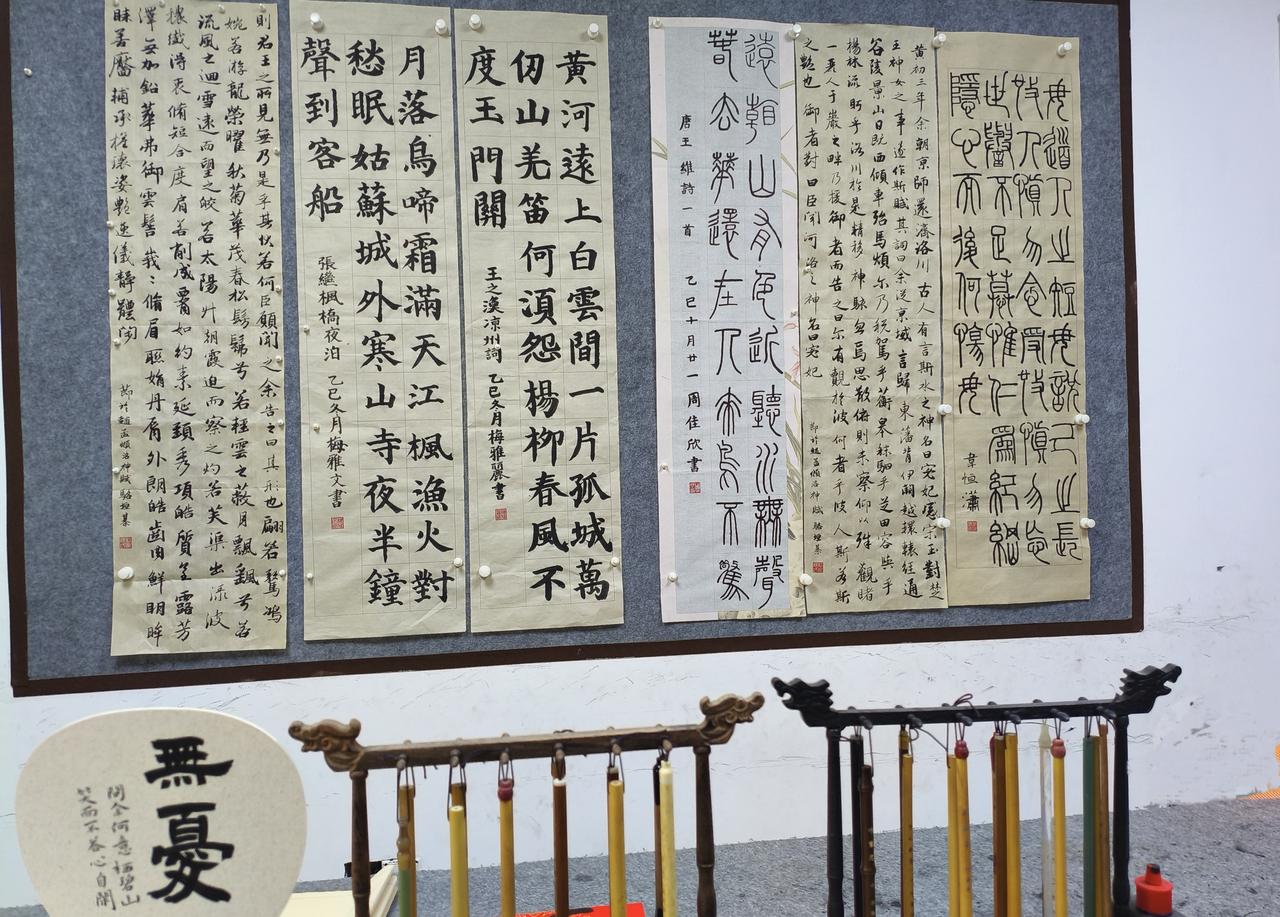 毋道人之短毋説己之長
施人慎勿念受施慎勿忘
世譽不足慕惟仁為紀綱
隱心而後何傷毋
韋恒瀟
黄初三年余朝京師還濟洛川古人有言斯水之神名曰宓妃感宋玉對楚
王神女之事遂作斯賦其詞曰余從京域言歸東藩背伊闕越轘轅經通
谷陵景山日既西傾車殆馬煩尔乃税駕乎蘅皋秣駟乎芝田容與乎
楊林流眄乎洛川於是精移神駭忽焉思散俯則未察仰以殊觀睹
一麗人于巖之畔乃援御者而告之曰尔有覿於彼何者乎彼人斯若斯
之豔也御者對曰臣聞河洛之神名曰宓妃
節於趙孟頫洛神賦
遠看山有色近聽水無聲
春去華還在人來鳥不驚
唐王維詩一首 乙巳十月廿一周佳欣書
黃河遠上白雲間一片孤城萬
仞山羌笛何湏怨楊柳春風不
度玉門關
王之渙凉州詞 乙巳冬月梅雅麗書
月落烏啼霜滿天江楓漁火對
愁眠姑蘇城外寒山寺夜半鐘
聲到客船
張繼楓橋夜泊 乙巳冬月梅雅文書
則君王之所見無乃是乎其狀若何臣願聞之余告之曰其形也翩若驚鴻
婉若游龍榮曜秋菊華茂春松髣髴兮若輕雲之蔽月飄颻兮若
流風之迴雪遠而望之皎若太陽升朝霞迫而察之灼若芙蕖出淥波
穠纖得衷脩短合度肩若削成腰如約素延頸秀項皓質呈露芳
澤無加鉛華弗御雲髻峩峩脩眉聯娟丹脣外朗皓齒内鮮明眸
睞善靨輔承權瓌姿艷逸儀靜體閑
節於趙孟頫洛神賦
無憂
問余何意栖碧山
笑而不答心自閑